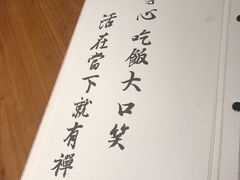 心吃飯大口笑
活在當下就有禪